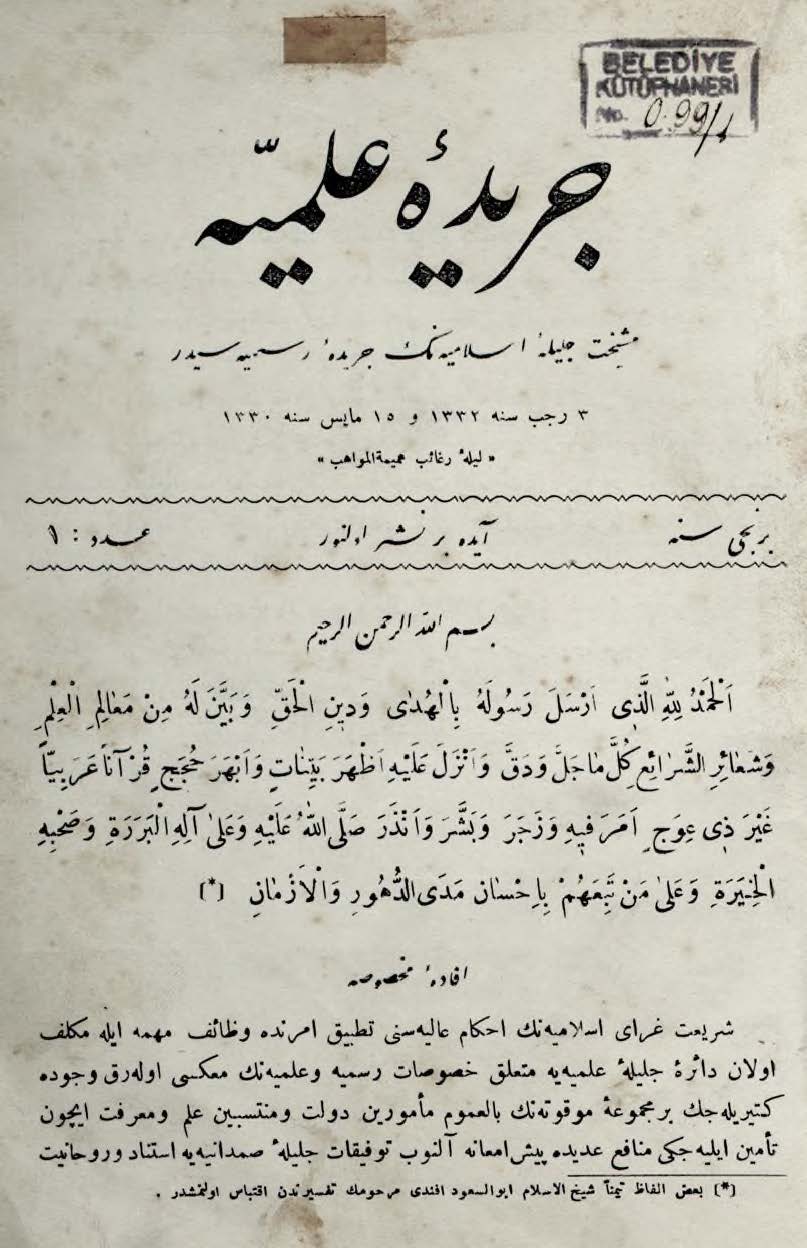 BELEDİYE
KÜTÜPHANESİ
No. 0.99/1
جريدهٔ علميّه
مشيخت جليلهٔ اسلاميه‌نك جريدهٔ رسميه‌سيدر
٣ رجب سنه ١٣٣٢ و ١٥ مايس سنه ١٣٣٠
« ليلهٔ رغائب عميمة‌المواهب »
برنجى سنه آيده بر نشر اولنور عدد : ١
بسم الله الرحمن الرحيم
اَلْحَمْدُ لِلّٰهِ الَّذِى اَرْسَلَ رَسُولَهُ بِالْهُدٰى وَدِينِ الْحَقِّ وَبَيَّنَ لَهُ مِنْ مَعٰالِمِ الْعِلْمِ
وَشَعٰائِرِ الشَّرٰائِعِ كُلَّ مٰا جَلَّ وَدَقَّ وَاَنْزَلَ عَلَيْهِ اَظْهَرَ بَيِّنٰاتٍ وَاَبْهَرَ حُجَجٍ قُرْآناً عَرَبِيّاً
غَيْرَ ذِى عِوَجٍ اَمَرَ فِيهِ وَزَجَرَ وَبَشَّرَ وَاَنْذَرَ صَلَّى اللّٰهُ عَلَيْهِ وَعَلىٰ آلِهِ الْبَرَرَةِ وَصَحْبِهِ
الْخِيَرَةِ وَعَلىٰ مَنْ تَبِعَهُمْ بِاِحْسٰان مَدَى الدُّهُورِ وَالْاَزْمٰانِ (*)
افادهٔ مخصوصه
شريعت غراى اسلاميه‌نك احكام عاليه‌سنى تطبيق امرنده وظائف مهمه ايله مكلف
اولان دائرهٔ جليلهٔ علميه‌يه متعلق خصوصات رسميه وعلميه‌نك معكسى اوله‌رق وجوده
كتيريله‌جك بر مجموعهٔ موقوته‌نك بالعموم مأمورين دولت ومنتسبين علم ومعرفت ايچون
تأمين ايليه‌جكى منافع عديده پيش امعانه آلنوب توفيقات جليلهٔ صمدانيه‌يه استناد وروحانيت
(*) بعض الفاظ تيمناً شيخ الاسلام ابوالسعود افندى مرحومك تفسيرندن اقتباس اولنمشدر .